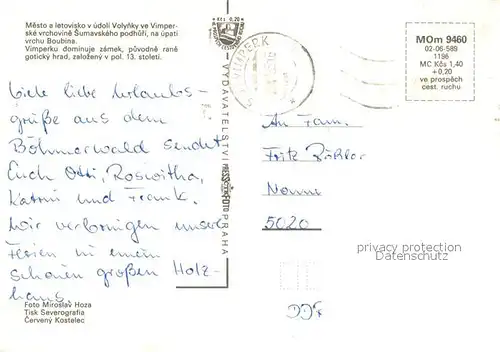 Město a letovisko v údolí Volyňky ve Vimper-
ské vrchovině Šumavského podhůří, na úpatí
vrchu Boubína.
Vimperku dominuje zámek, původně raně
gotický hrad, založený v pol. 13. století.
Viele liebe Urlaubs-
grüße aus dem
Böhmerwald sendet
Euch Otti, Roswitha,
Katrin und Frank.
Wir verbringen unsere
Ferien in einem
schönen großen Holz-
haus.
Foto Miroslav Hoza
Tisk Severografia
Červený Kostelec
Kčs 0,20
VYDAVATELSTVÍ
PRESSFOTO
PRAHA
VIMPERK
MOm 9460
02-06-589
1196
MC Kčs 1,40
+0,20
ve prospěch
cest. ruchu
An Fam.
Fritz Böhler
5020
privacy protection
Datenschutz